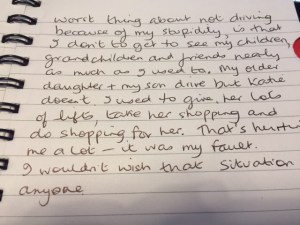 worst thing about not driving
because of my stupidity, is that
I don't to get to see my children,
grandchildren and friends nearly
as much as I used to. My older
daughter + my son drive but Katie
doesnt. I used to give her lots
of lifts, take her shopping and
do shopping for her. That's hurting
me a lot - it was my fault.
I wouldn't wish that situation
anyone